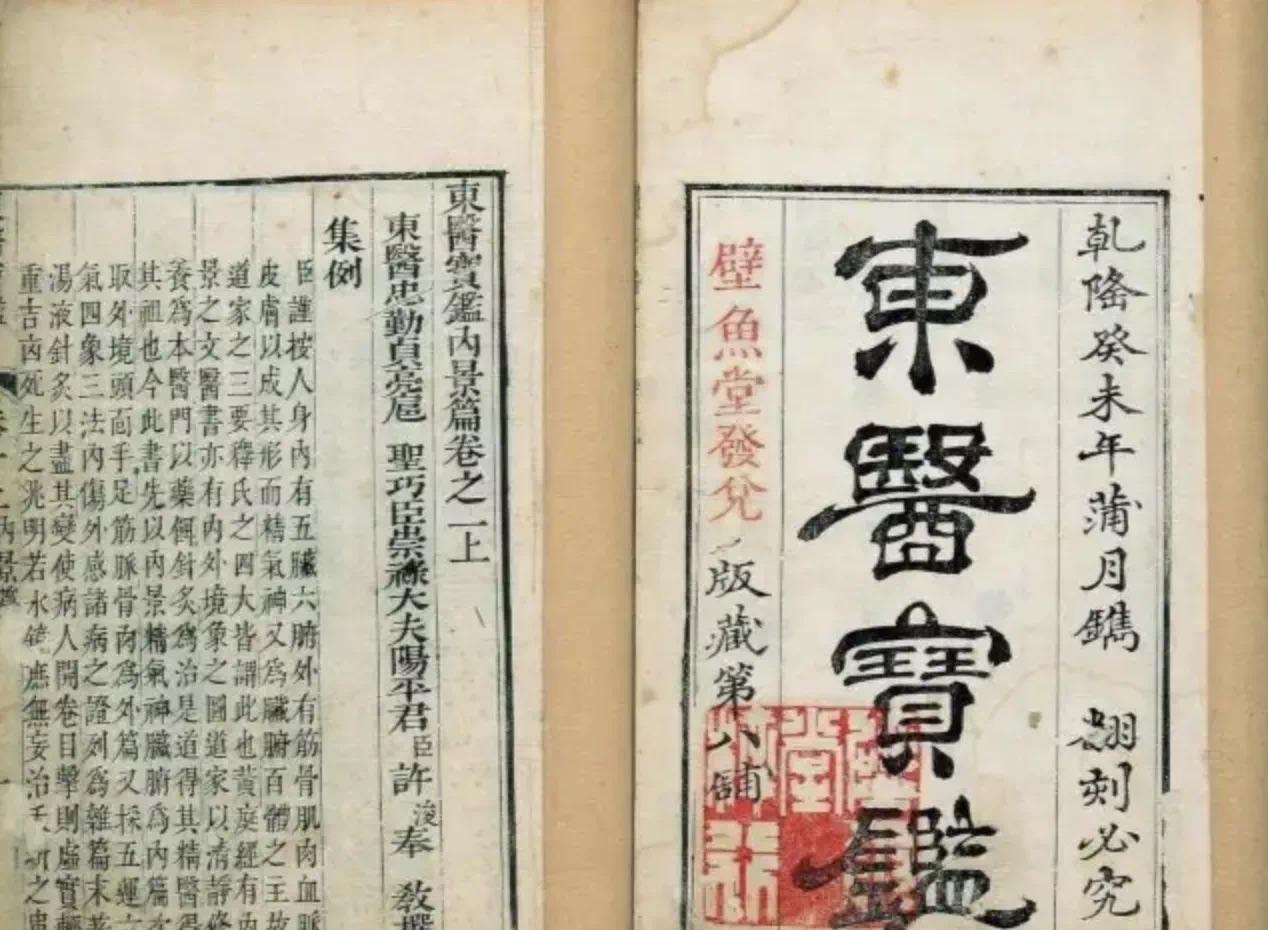 乹隆癸未年蒲月鐫 翻刻必究
東醫寶鑑
壁魚堂發兌 版藏第八鋪
東醫寶鑑內景篇卷之一上
東醫忠勤貞亮扈 聖功臣崇祿大夫陽平君臣許浚奉 敎撰
集例
臣謹按人身內有五臟六腑外有筋骨肌肉血脈
皮膚以成其形而精氣神又爲臟腑百體之主故
道家之三要釋氏之四大皆謂此也黃庭經有內
景之文醫書亦有內外境象之圖道家以清靜修
養爲本醫門以藥餌針炙爲治是道得其精醫得
其祖也今此書先以內景精氣神臟腑爲內篇次
取外境頭面手足筋脈骨肉爲外篇又採五運六
氣四象三法內傷外感諸病之證列爲雜篇末著
湯液針炙以盡其變使病人開卷目擊則虛實輕
重吉凶死生之兆明若水鏡庶無妄治